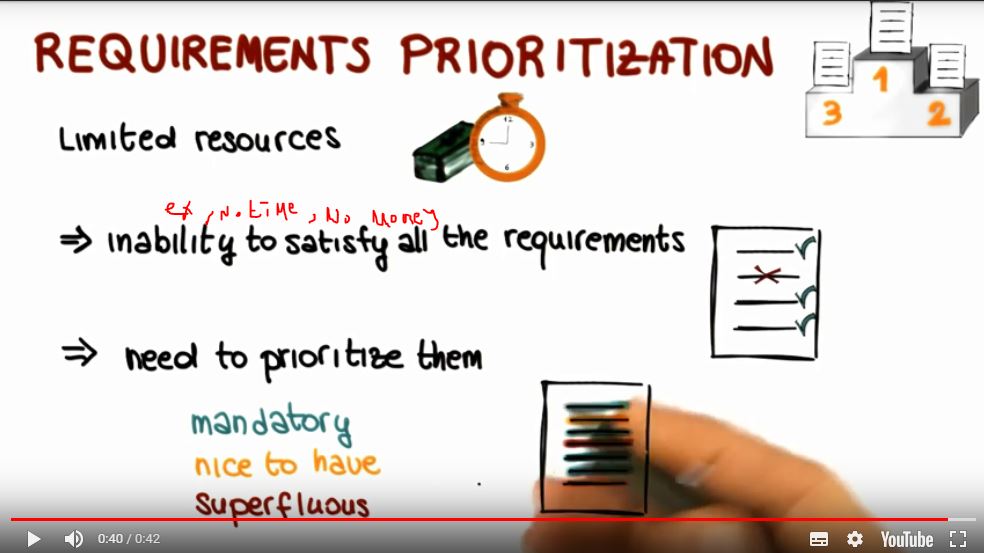 REQUIREMENTS PRIORITIZATION
1
3
2
Limited resources
12
9
3
6
ex, No time, No Money
⇒ inability to satisfy all the requirements
⇒ need to prioritize them
mandatory
nice to have
superfluous
0:40 / 0:42
YouTube